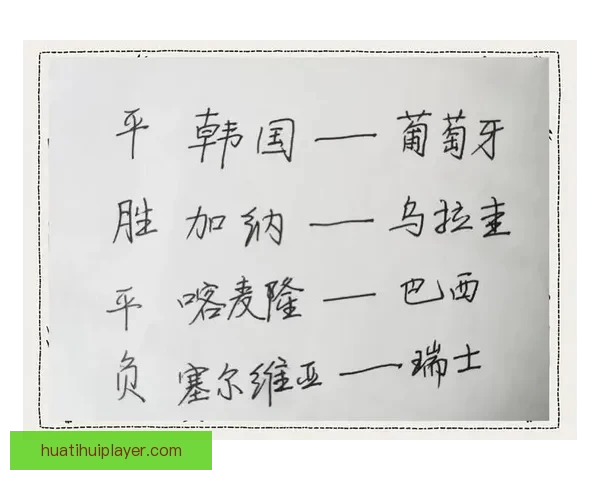 平 韩国 — 葡萄牙
胜 加纳 — 乌拉圭
平 喀麦隆 — 巴西
负 塞尔维亚 — 瑞士
huatihuiplayer.com